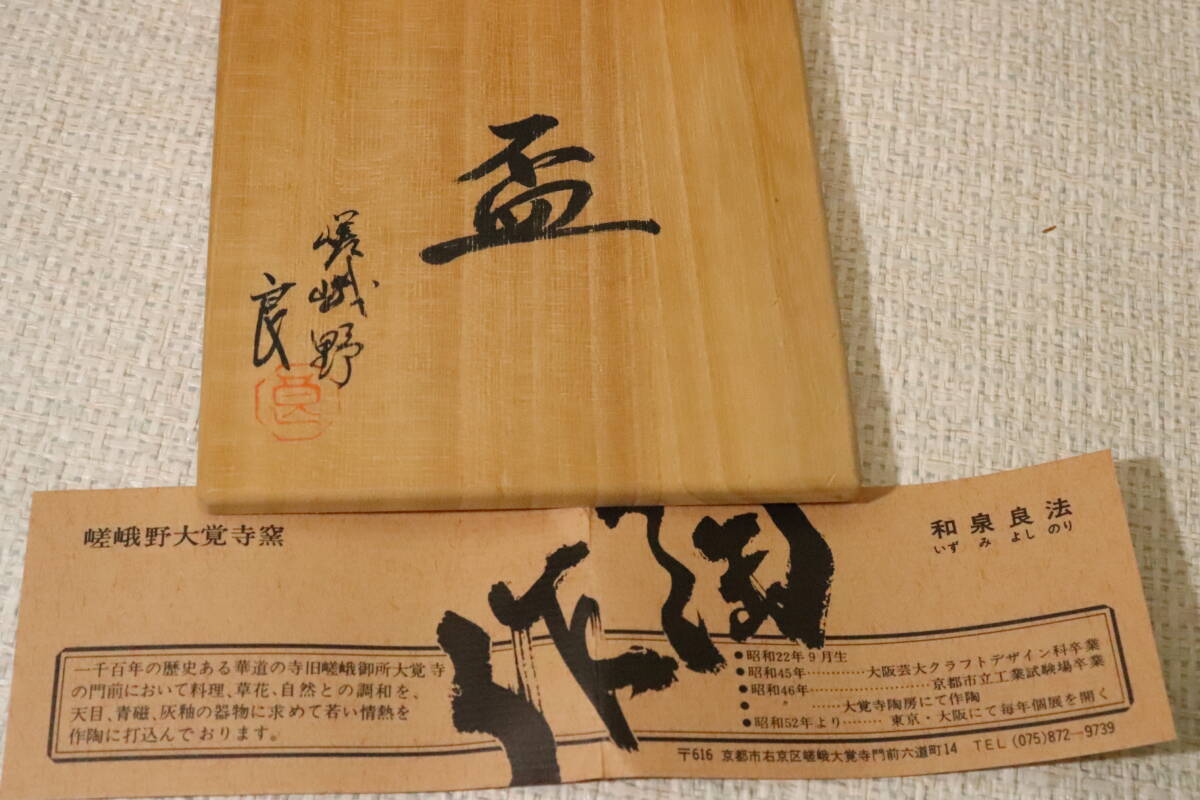 盃
嵯峨野
良
嵯峨野大覚寺窯
一千百年の歴史ある華道の寺旧嵯峨御所大覚寺
の門前において料理、草花、自然との調和を、
天目、青磁、灰釉の器物に求めて若い情熱を
作陶に打込んでおります。
作陶
和泉良法
いずみよしのり
●昭和22年9月生
●昭和45年…………大阪芸大クラフトデザイン科卒業
●昭和46年……………………京都市立工業試験場卒業
● 〃 ……大覚寺陶房にて作陶
●昭和52年より……… 東京・大阪にて毎年個展を開く
〒616 京都市右京区嵯峨大覚寺門前六道町14 TEL (075)872-9739